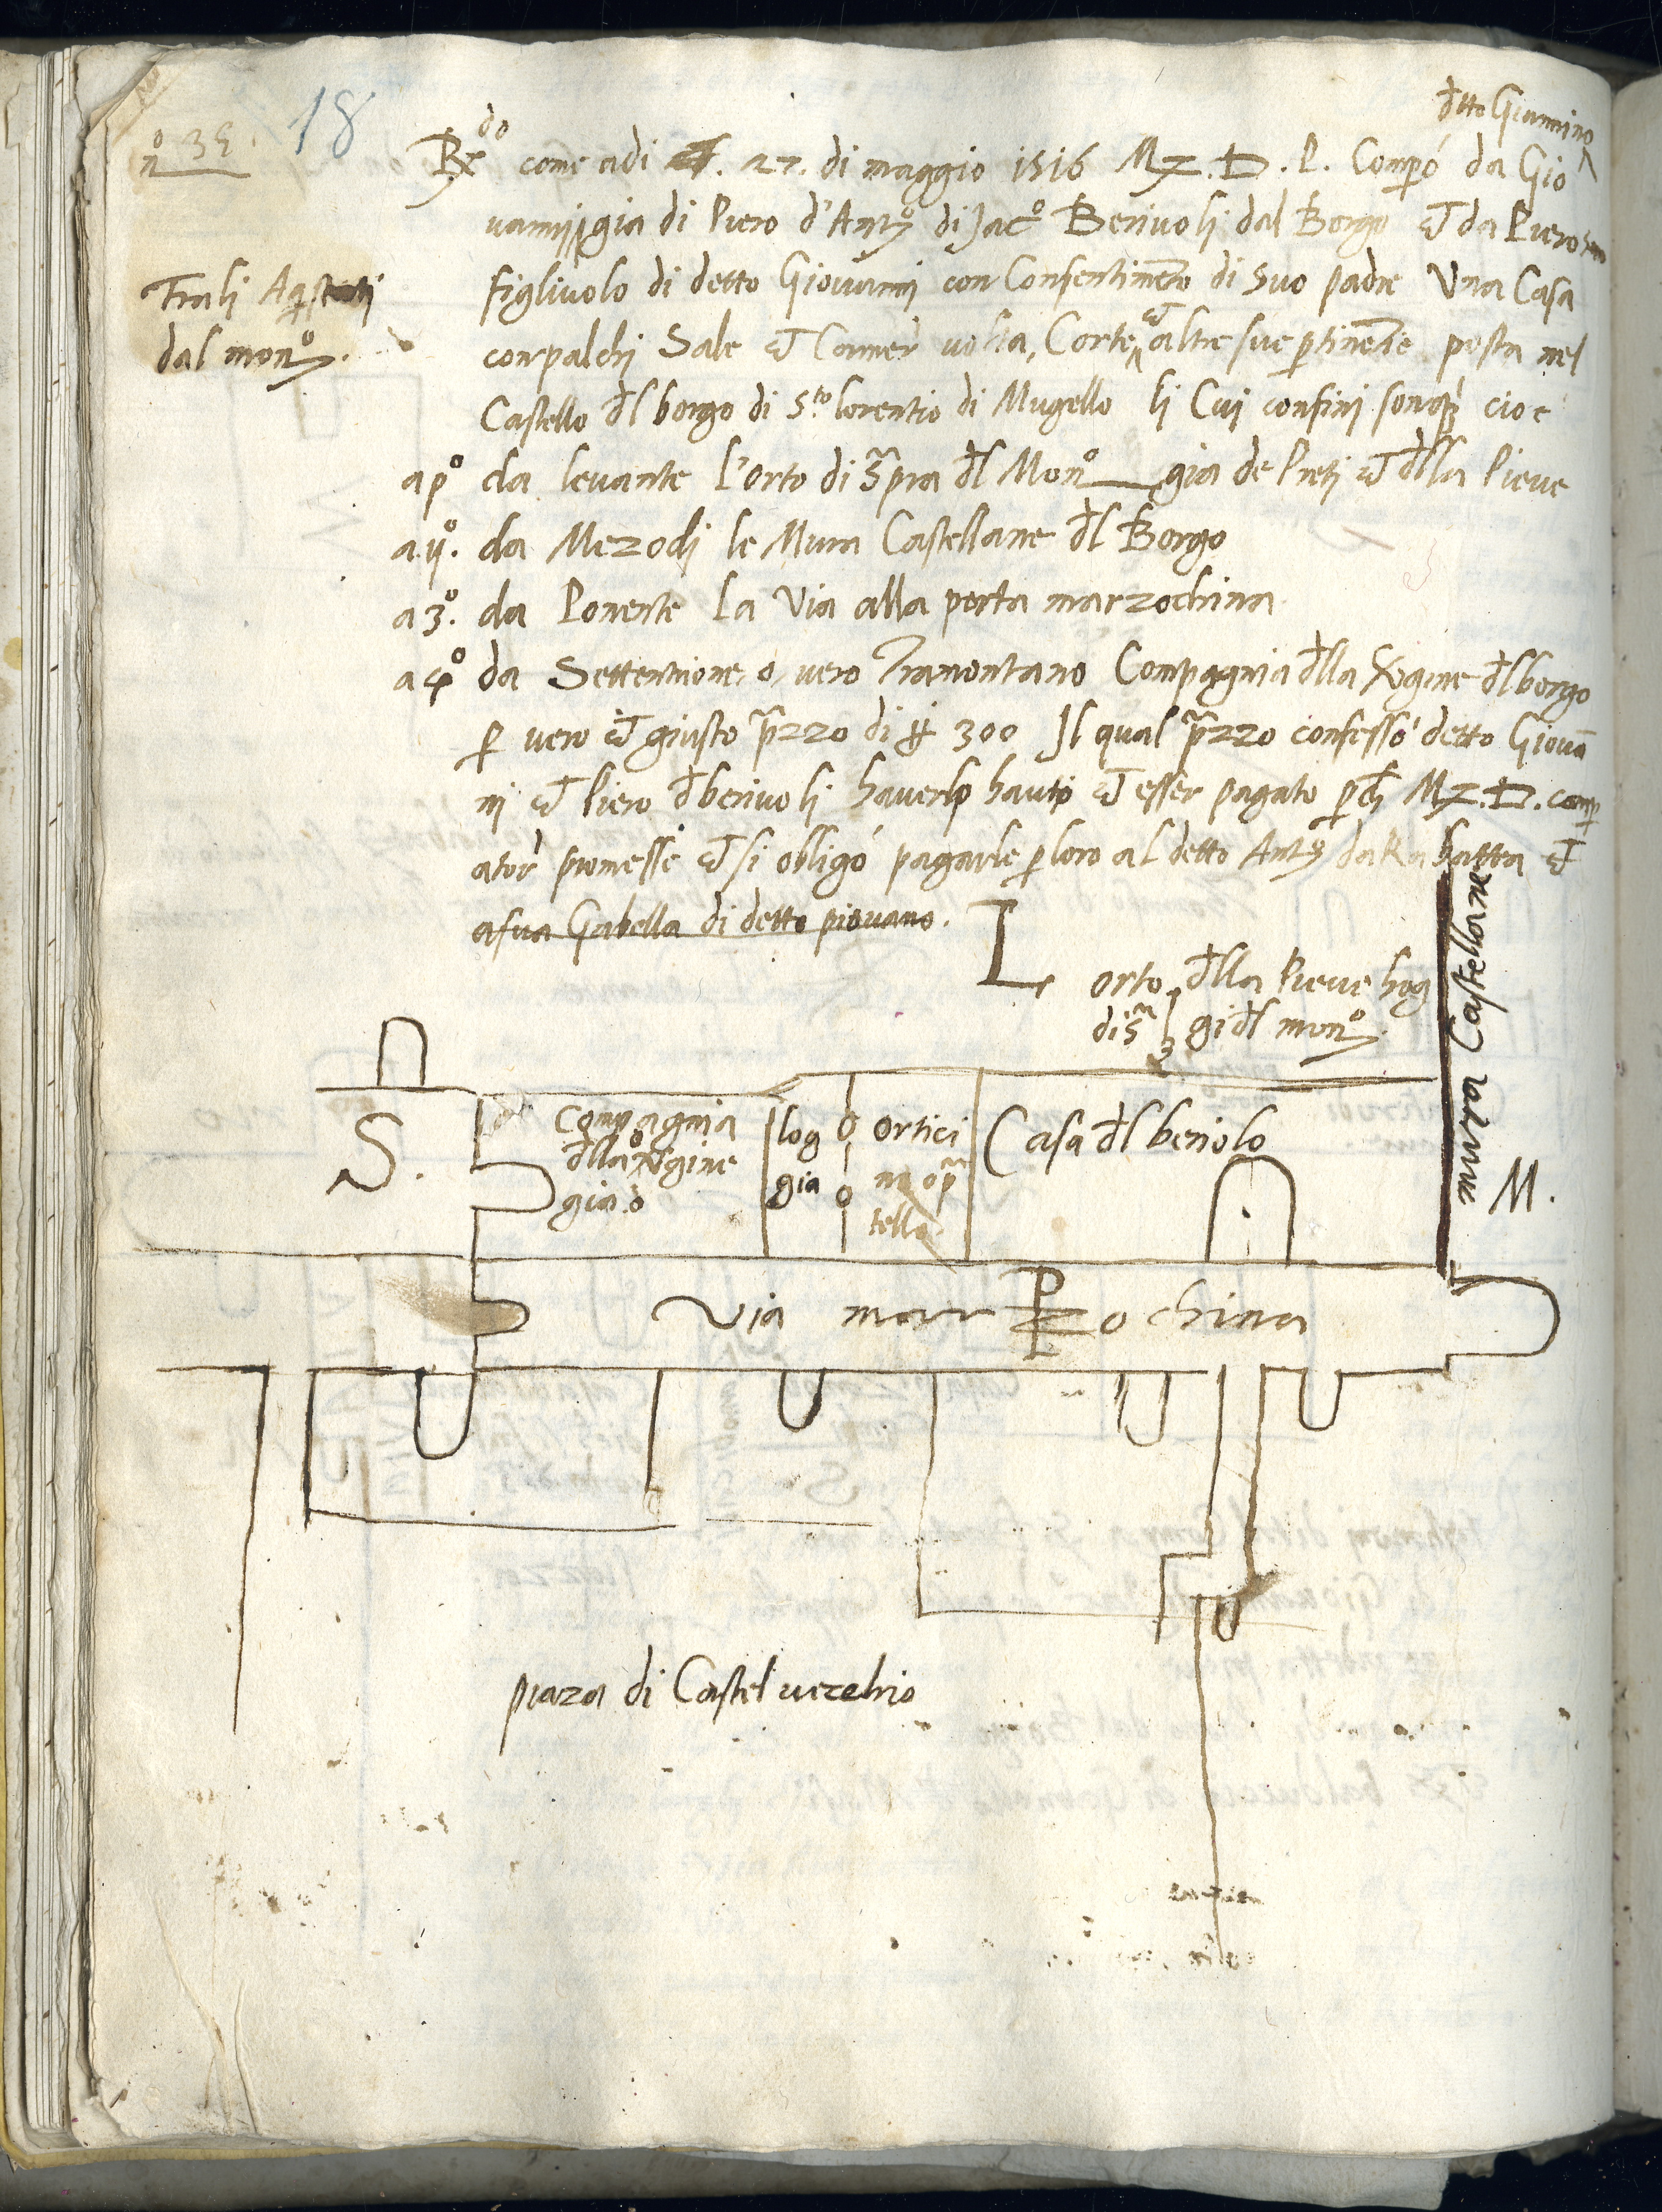 18
n° 35.
dtto Giannino
Rdo come adi 27. di maggio 1516 Mz. D. P. Compó da Gio
vanni gia di Piero d'Anto di Jac° Berivoli dal Borgo et da Piero
figlivolo di detto Giovanni con Consentimento di suo padre Una Casa
Fra li
dal mon°.
con palchi Sale et Camer volta, Corte et altre sue ptinentie posta nel
Castello dl borgo di Sto lorentio di Mugello li Cui confini sono cioe
a p° da levante l'orto di Spra dl Mon° gia de Preti et dlla Pieve
a ij°. da Mezodi le Mura Castellane dl Borgo
a 3°. da Ponente La Via alla porta marzochina
a 4° da Settentrione o vero Tramontano Compagnia dlla Vergine dl borgo
p vero et giusto przzo di 300 Il qual przzo confessó detto Giová
ni et Piero dberivoli haverlo hauto et esser pagato pch Mz. D. comp
ator promesse et si obligó pagarle p loro al detto Anto da Rabatta et
a sua Gabella di detto piovano.
L orto dlla Pieve hog
di sa gi dl mon°
mura Castellane
S.
Compagnia
dlla Vgine
gia
log
gia
ortici
no
tello
Casa dl beriolo
M.
Via marzochina
P
piaza di Castel vecchio